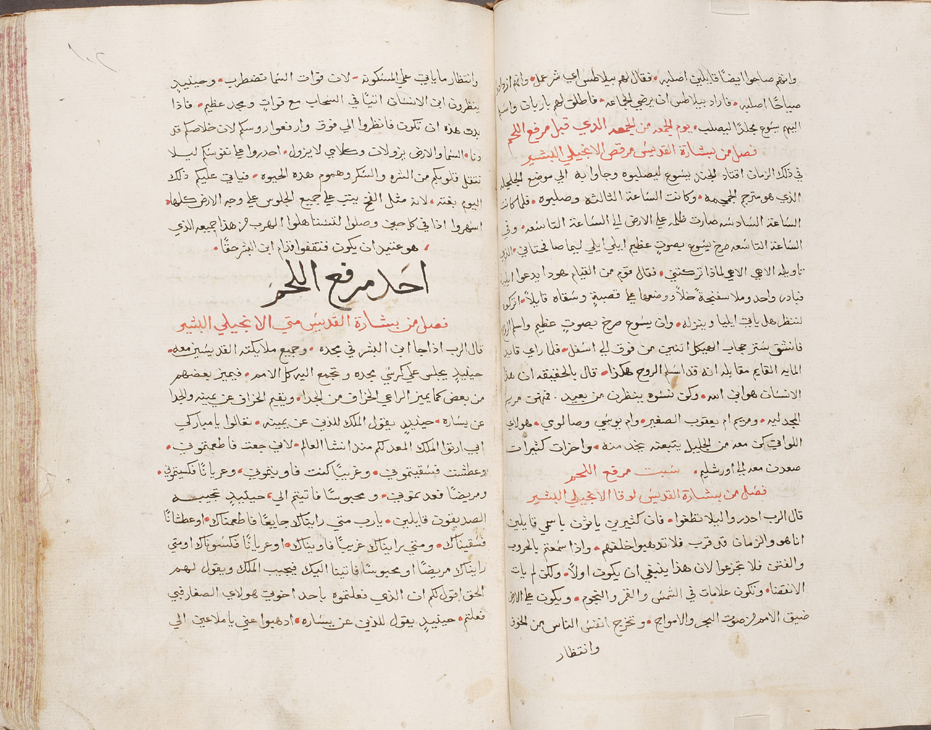 وانهم صاحوا ايضًا قايلين اصلبه • فقال لهم بيلاطس اي شر عمل • وانهم ازدادوا
صياحًا اصلبه • فاراد بيلاطس ان يرضي الجماعه • فاطلق لهم باراباس واسلم
اليهم يسوع مجلدًا ليصلب • يوم الجمعه من الجمعه الذي قبل مرفع اللحم
فصل من بشارة القديس مرقص الانجيلي البشير
في ذلك الزمان اقتاد الجند يسوع ليصلبوه وجاوا به الي موضع الجلجله
الذي هو مترجم الجمجمه • وكانت الساعة الثالثه وصلبوه • فلما كانت
الساعة السادسه صارت ظلمه علي الارض الي الساعة التاسعه • وفي
الساعة التاسعه صرخ يسوع بصوتٍ عظيم ايلي ايلي ليما صافختاني • الذي
تاويله الاهي الاهي لماذا تركتني • فقال قوم من القيام هودا يدعوا ايليا
فبادر واحد وملا سفنجة خلًا ووضعها علي قصبةٍ وسقاه قايلًا • اتركوا
لننظر هل ياتي ايليا وينزله • وان يسوع صرخ بصوتٍ عظيم واسلم الروح
فانشق ستر حجاب الهيكل اثنين من فوق الي اسفل • فلما راي قايد
المايه القايم مقابله انه قد اسلم الروح هكذا • قال بالحقيقه ان هذا
الانسان هو ابن الله • وكن نسوه ينظرن من بعيد • فمنهن مريم
المجدليه • ومريم ام يعقوب الصغير • وام يوسي وصالومي • هولاي
اللواتي كن معه من الجليل يتبعنه يخدمنه • واخرات كثيرات
صعدت معه الي اورشليم • سبت مرفع اللحم
فصل من بشارة القديس لوقا الانجيلي البشير
قال الرب احدروا ليلا تظلوا • فان كثيرين ياتون باسمي قايلين
انا هو والزمان قد قرب فلا تدهبوا خلفهم • واذا سمعتم بالحروب
والفتن فلا تجزعوا لان هذا ينبغي ان يكون اولًا • ولكن لم يات
الانقضا • وتكون علامات في الشمس والقمر والنجوم • ويكون علي الارض
ضيق الامم من صوت البحر والامواج • وتخرج انفس الناس من الخوف
وانتظار
١٠٢
وانتظار ما ياتي علي المسكونه • لان قوات السما تضطرب • وحينيدٍ
ينظرون ابن الانسان اتيًا في السحاب مع قواتٍ ومجد عظيم • فاذا
بدت هذه ان تكون فانظروا الي فوق وارفعوا روسكم لان خلاصكم قد
دنا • السما والارض يزولان وكلامي لا يزول • احدروا علي نفوسكم ليلا
تثقل قلوبكم من الشره والسكر وهموم هذه الحيوه • فياتي عليكم ذلك
اليوم بغته • لانه مثل الفخ ياتي علي جميع الجلوس علي وجه الارض كلها •
اسهروا اذا في كل حين وصلوا لكيما تستاهلوا الهرب من هذا جميعه الذي
هو عتيد ان يكون فتقفوا قدام ابن البشر حقًا •
احد مرفع اللحم
فصل من بشارة القديس متي الانجيلي البشير
قال الرب اذا جا ابن البشر في مجده • وجميع ملايكته القديسين معه •
حينيدٍ يجلس علي كرسي مجده وتجمع اليه كل الامم • فيميز بعضهم
من بعض كما يميز الراعي الخراف من الجدا • ويقيم الخراف عن يمينه والجدا
عن يساره • حينيدٍ يقول الملك للذين عن يمينه • تعالوا يا مباركي
ابي ارثوا الملك المعد لكم منذ انشا العالم • لاني جعت فاطعمتوني •
وعطشت فسقيتموني • وغريبًا كنت فاويتموني • وعريانًا فكسيتموني •
ومريضًا فعدتموني • ومحبوسًا فاتيتم الي • حينيدٍ تجيبه
الصديقون قايلين • يا رب متي رايناك جايعًا فاطعمناك • او عطشانًا
فسقيناك • ومتي رايناك غريبًا فاويناك • او عريانًا فكسوناك او متي
رايناك مريضًا او محبوسًا فاتينا اليك فيجيب الملك ويقول لهم
الحق اقول لكم ان الذي فعلتموه باحد اخوتي هولاي الصغار فبي
فعلتم • حينيدٍ يقول للذين عن يساره • ادهبوا عني يا ملاعين الي